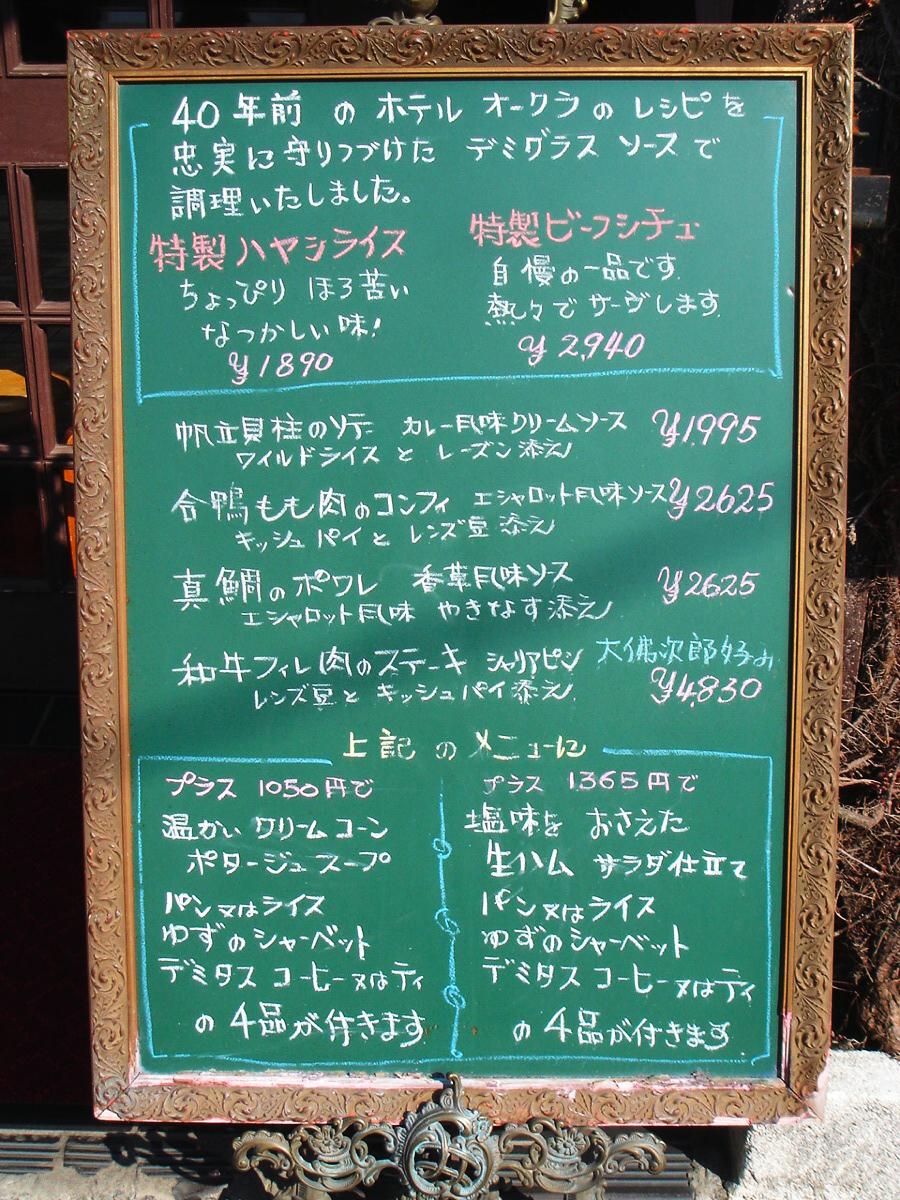 40年前 の ホテル オークラの レシピを
忠実に守りつづけた デミグラス ソースで
調理いたしました。
特製ハヤシライス
ちょっぴり ほろ苦い
なつかしい味!
¥1890
特製ビーフシチュ
自慢の一品です.
熱々で サーヴします.
¥2,940
帆立貝柱のソテー カレー風味クリームソース ¥1,995
ワイルドライス と レーズン添え
合鴨もも肉のコンフィ エシャロット風味ソース ¥2625
キッシュパイと レンズ豆添え
真鯛のポワレ 香草風味ソース ¥2625
エシャロット風味 やきなす添え
和牛フィレ肉のステーキ シャリアピン 大佛次郎好み
レンズ豆と キッシュパイ添え ¥4,830
上記 の メニューに
プラス 1050円で
温かい クリームコーン
ポタージュスープ
パン又はライス
ゆずのシャーベット
デミタス コーヒー又はティ
の 4品が付きます
プラス 1365円で
塩味を おさえた
生ハム サラダ仕立て
パン又はライス
ゆずのシャーベット
デミタス コーヒー又はティ
の 4品が付きます